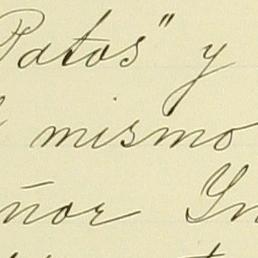 Patos" y
mismo
ñor In